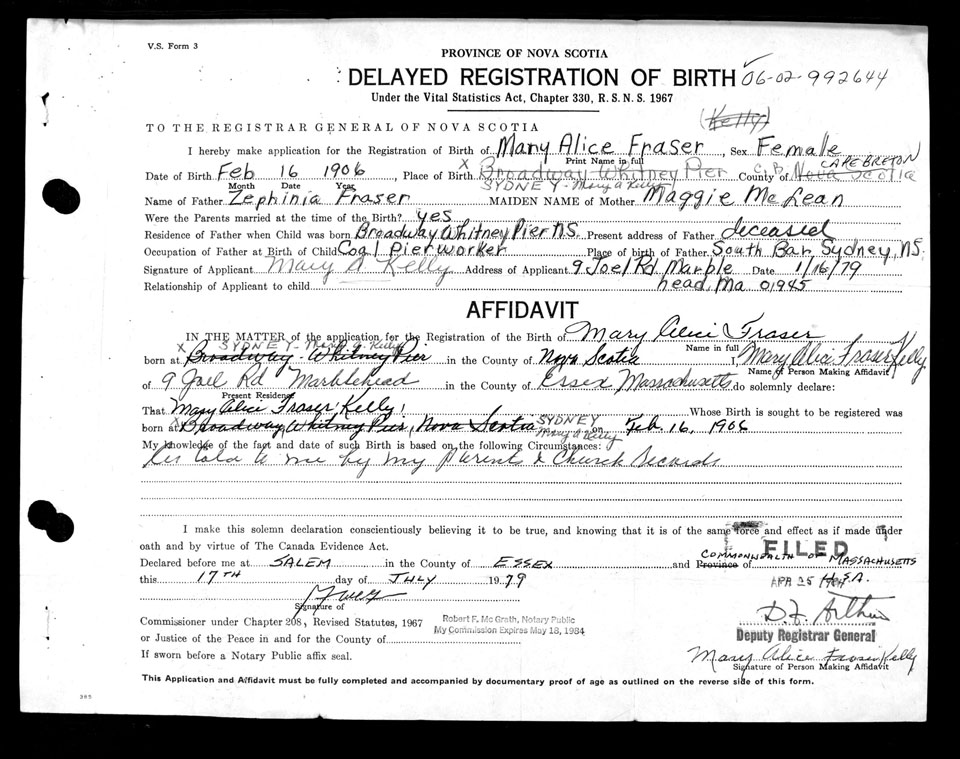 V.S. Form 3
PROVINCE OF NOVA SCOTIA
DELAYED REGISTRATION OF BIRTH 06-02-992644
Under the Vital Statistics Act, Chapter 330, R.S.N.S. 1967
(Kelly)
TO THE REGISTRAR GENERAL OF NOVA SCOTIA
I hereby make application for the Registration of Birth of Mary Alice Fraser, Sex Female
Print Name in full
CAPE BRETON
Date of Birth Feb 16 1906, Place of Birth X Broadway Whitney Pier C.B. County of Nova Scotia
Month Date Year SYDNEY - Mary A Kelly
Name of Father Zephinia Fraser MAIDEN NAME of Mother Maggie McLean
Were the Parents married at the time of the Birth? yes
Residence of Father when Child was born Broadway Whitney Pier N.S. Present address of Father deceased
Occupation of Father at Birth of Child Coal Pier worker Place of birth of Father South Bar, Sydney, N.S.
Signature of Applicant Mary A. Kelly Address of Applicant 9 Joel Rd Marble Date 1/16/79
Relationship of Applicant to child head, Ma 01945
AFFIDAVIT
IN THE MATTER of the application for the Registration of Birth of Mary Alice Fraser
X SYDNEY - Mary A. Kelly Name in full
born at Broadway - Whitney Pier in the County of Nova Scotia I, Mary Alice Fraser Kelly
Name of Person Making Affidavit
of 9 Joel Rd Marblehead in the County of Essex Massachusetts do solemnly declare:
Present Residence
That Mary Alice Fraser Kelly Whose Birth is sought to be registered was
born at Broadway Whitney Pier, Nova Scotia SYDNEY on Feb. 16, 1906
Mary A Kelly
My knowledge of the fact and date of such Birth is based on the following Circumstances:
As told to me by my Parents & Church Records
I make this solemn declaration conscientiously believing it to be true, and knowing that it is of the same force and effect as if made under
oath and by virtue of The Canada Evidence Act.
FILED
COMMONWEALTH OF MASSACHUSETTS
Declared before me at SALEM in the County of ESSEX and Province of
this 17TH day of JULY 1979
APR 25 U.S.A.
Signature of
D.F. Arthur
Commissioner under Chapter 208, Revised Statutes, 1967
Robert F. McGrath, Notary Public
My Commission Expires May 18, 1984
Deputy Registrar General
or Justice of the Peace in and for the County of
If sworn before a Notary Public affix seal.
Mary Alice Fraser Kelly
Signature of Person Making Affidavit
This Application and Affidavit must be fully completed and accompanied by documentary proof of age as outlined on the reverse side of this form.
385